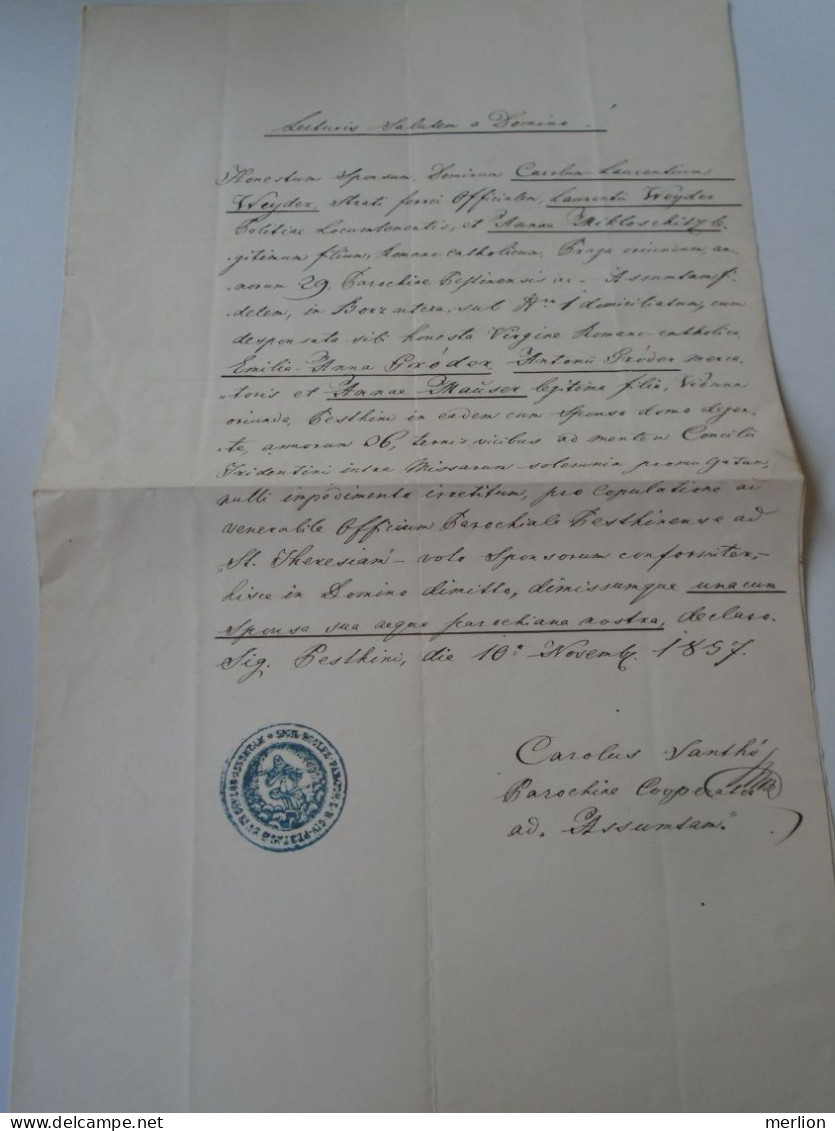 Lecturis Salutem a Domino!
Honestum Sponsum, Dominum Carolum Laurentium
Weyder, Strati ferrei Officialem, Laurentii Weyder
Politiae Locumtenentis, et Annae Mikloschitz le-
gitimum filium, Romano catholicum, Praga oriundum, an-
norum 29, Parochiae Pestinensis ad Assumtam fi-
delem, in domiciliatum, cum
desponsata sibi honesta Virgine Romano catholica,
Emilia Anna Gróder Antonii Gróder merca-
toris et Annae Mauser legitima filia, Vienna
oriunda, Pesthini in eadem cum Sponso domo degen-
te, annorum 26, ternis vicibus ad mentem Concilii
Tridentini intra Missarum solemnia promulgatum,
nulli impedimento irretitum, pro copulatione ad
venerabile Officium Parochiale Pesthinense ad
St. Theresiam voto Sponsorum conformiter,
hisce in Domino dimitto, dimissumque unacum
Sponsa sua aeque parochiana nostra, declaro.
Sig. Pesthini, die 10a Novemb. 1857.
Carolus Santhó
Parochiae Cooperator
ad "Assumtam"
merlion